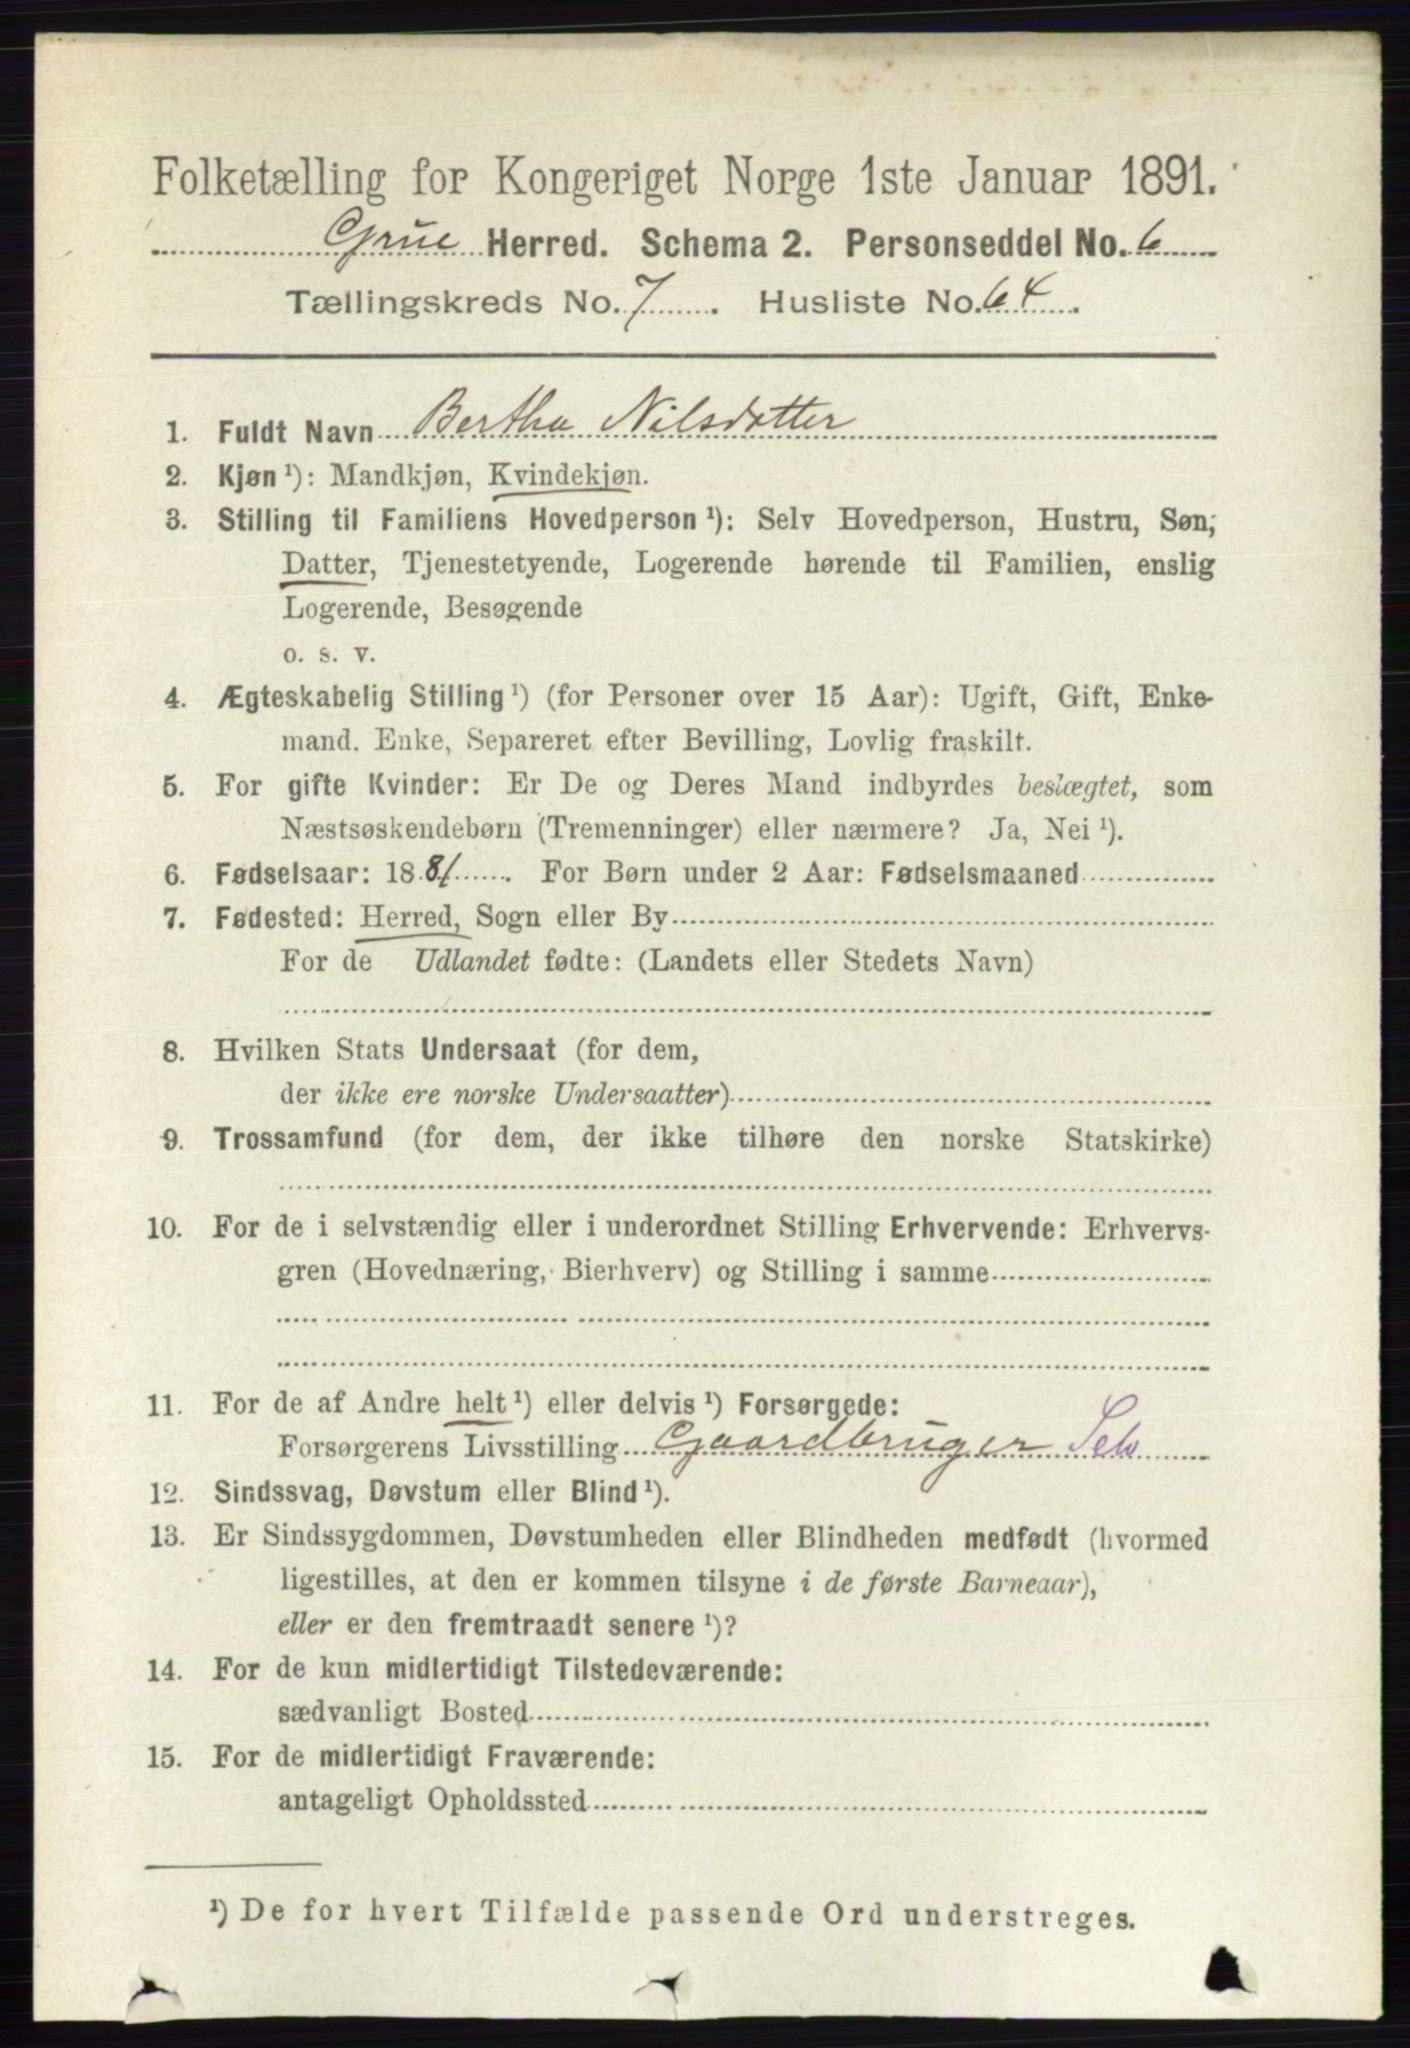 Folketælling for Kongeriget Norge 1ste Januar 1891.
Grue Herred. Schema 2. Personseddel No. 6
Tællingskreds No. 7. Husliste No. 64.
1. Fuldt Navn Bertha Nilsdatter
2. Kjøn ¹): Mandkjøn, Kvindekjøn.
3. Stilling til Familiens Hovedperson ¹): Selv Hovedperson, Hustru, Søn,
Datter, Tjenestetyende, Logerende hørende til Familien, enslig
Logerende, Besøgende
o. s. v.
4. Ægteskabelig Stilling ¹) (for Personer over 15 Aar): Ugift, Gift, Enke-
mand, Enke, Separeret efter Bevilling, Lovlig fraskilt.
5. For gifte Kvinder: Er De og Deres Mand indbyrdes beslægtet, som
Næstsøskendebørn (Tremenninger) eller nærmere? Ja, Nei ¹).
6. Fødselsaar: 1881. For Børn under 2 Aar: Fødselsmaaned
7. Fødested: Herred, Sogn eller By
For de Udlandet fødte: (Landets eller Stedets Navn)
8. Hvilken Stats Undersaat (for dem,
der ikke ere norske Undersaatter)
9. Trossamfund (for dem, der ikke tilhøre den norske Statskirke)
10. For de i selvstændig eller i underordnet Stilling Erhvervende: Erhvervs-
gren (Hovednæring, Bierhverv) og Stilling i samme
11. For de af Andre helt ¹) eller delvis ¹) Forsørgede:
Forsørgerens Livsstilling Gaardbruger Selv
12. Sindssvag, Døvstum eller Blind ¹).
13. Er Sindssygdommen, Døvstumheden eller Blindheden medfødt (hvormed
ligestilles, at den er kommen tilsyne i de første Barneaar),
eller er den fremtraadt senere ¹)?
14. For de kun midlertidigt Tilstedeværende:
sædvanligt Bosted
15. For de midlertidigt Fraværende:
antageligt Opholdssted
¹) De for hvert Tilfælde passende Ord understreges.